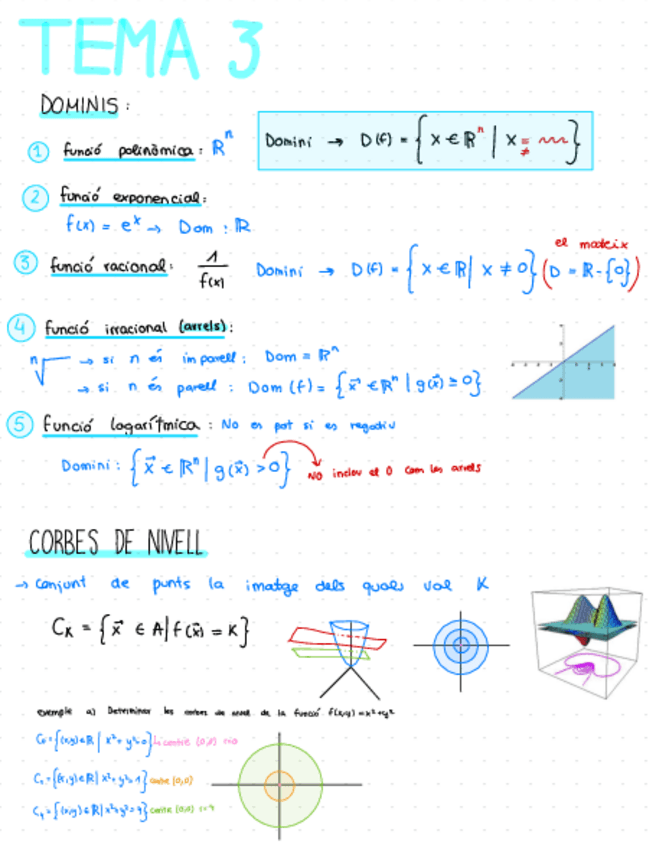 TEMA 3
DOMINIS:
① funció polinòmica: ℝⁿ
Domini → D(f) = { x ∈ ℝⁿ | x = ≠ }
② funció exponencial:
f(x) = eˣ → Dom: ℝ
③ funció racional: 1/f(x) Domini → D(f) = { x ∈ ℝ | x ≠ 0 } (D = ℝ - {0})
el mateix
④ funció irracional (arrels):
ⁿ√ → si n és imparell: Dom = ℝⁿ
→ si n és parell: Dom(f) = { x⃗ ∈ ℝⁿ | g(x⃗) ≥ 0 }
⑤ funció logarítmica: No es pot si es negatiu
Domini: { x⃗ ∈ ℝⁿ | g(x⃗) > 0 } NO inclou el 0 com les arrels
CORBES DE NIVELL
→ conjunt de punts la imatge dels quals val K
C_K = { x⃗ ∈ A | f(x⃗) = K }
exemple a) Determinar les corbes de nivell de la funció f(x,y) = x² + y²
C₀ = {(x,y) ∈ ℝ | x² + y² = 0} centre (0,0) r=0
C₁ = {(x,y) ∈ ℝ | x² + y² = 1} centre (0,0)
C₄ = {(x,y) ∈ ℝ | x² + y² = 4} centre (0,0)